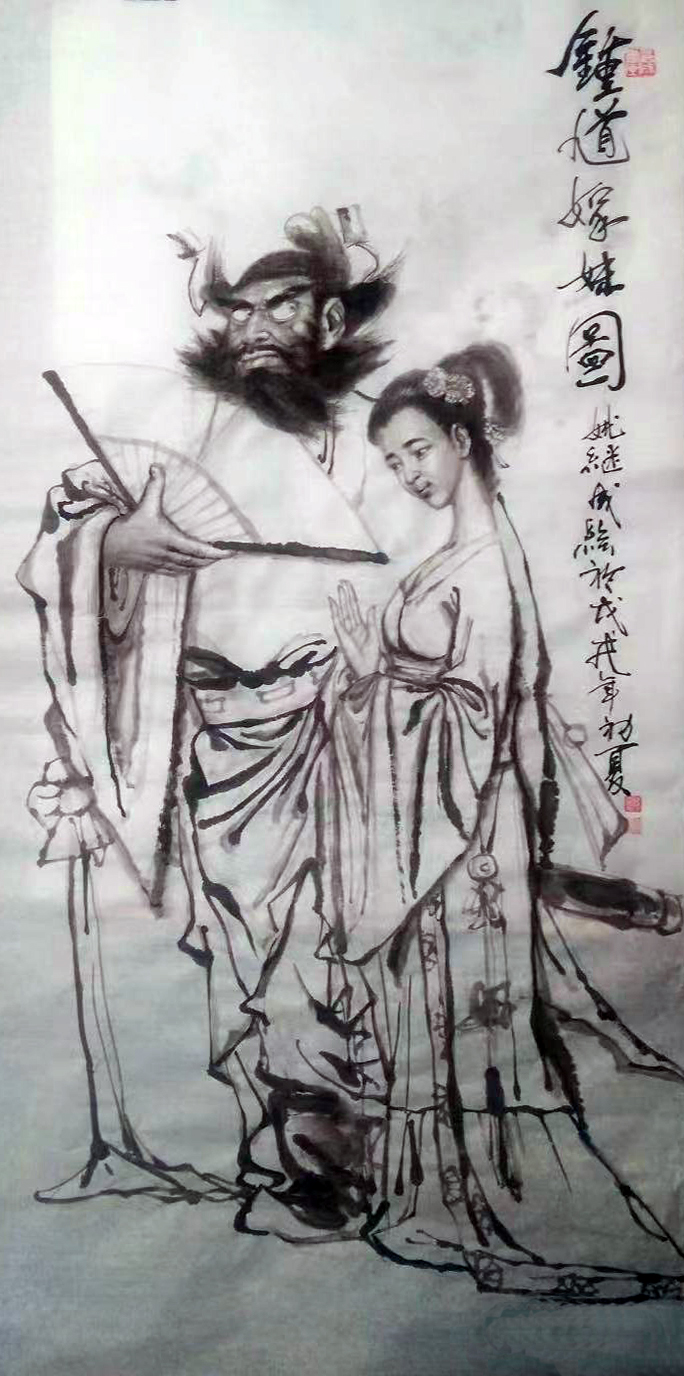 鍾馗嫁妹圖
姚继成绘於戊戌年初夏